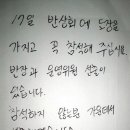 17일 반상회에 도장을
가지고 꼭 참석해 주십시요.
반장과 운영위원 선출이
있습니다.
참석하지 않는분 가운데서